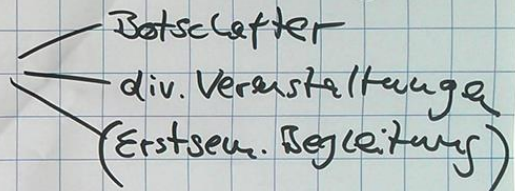 Botschafter
div. Veranstaltungen
(Erstsem. Begleitung)